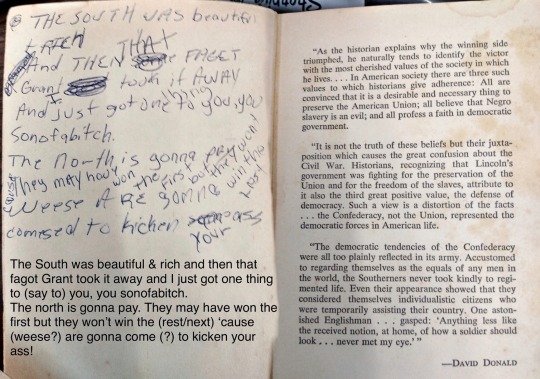 THE SOUTH WAS beautiful
& RICH
And THEN THAT FAGET
Grant took it AWAY
And I just got one thing to you, you
Sonofabitch.
The North is gonna pay
They may have won the first but they won't win the
cause Weese ARE gonna
to kicken your ass
The South was beautiful & rich and then that
fagot Grant took it away and I just got one thing
to (say to) you, you sonofabitch.
The north is gonna pay. They may have won the
first but they won't win the (rest/next) 'cause
(weese?) are gonna come (?) to kicken your
ass!
"As the historian explains why the winning side
triumphed, he naturally tends to identify the victor
with the most cherished values of the society in which
he lives. . . . In American society there are three such
values to which historians give adherence: All are
convinced that it is a desirable and necessary thing to
preserve the American Union; all believe that Negro
slavery is an evil; and all profess a faith in democratic
government.
"It is not the truth of these beliefs but their juxta-
position which causes the great confusion about the
Civil War. Historians, recognizing that Lincoln's
government was fighting for the preservation of the
Union and for the freedom of the slaves, attribute to
it also the third great positive value, the defense of
democracy. Such a view is a distortion of the facts
. . . the Confederacy, not the Union, represented the
democratic forces in American life.
"The democratic tendencies of the Confederacy
were all too plainly reflected in its army. Accustomed
to regarding themselves as the equals of any men in
the world, the Southerners never took kindly to regi-
mented life. Even their appearance showed that they
considered themselves individualistic citizens who
were temporarily assisting their country. One aston-
ished Englishman . . . gasped: 'Anything less like
the received notion, at home, of how a soldier should
look . . . never met my eye.' "
—DAVID DONALD